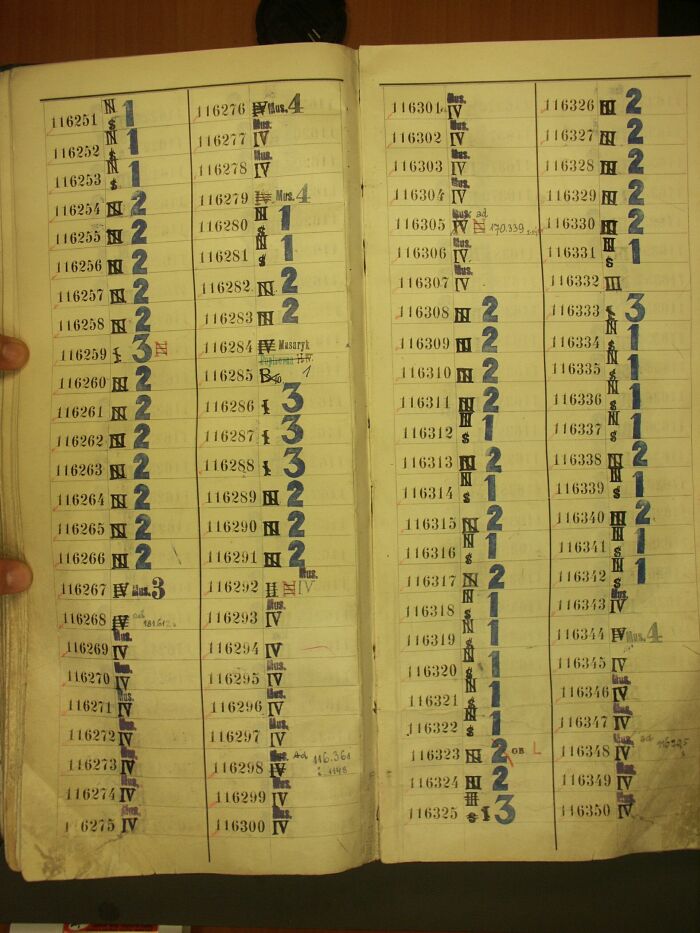 116251 N S 1
116252 N S 1
116253 N S 1
116254 N 2
116255 N 2
116256 N 2
116257 N 2
116258 N 2
116259 I 3 N
116260 N 2
116261 N 2
116262 N 2
116263 N 2
116264 N 2
116265 N 2
116266 N 2
116267 IV Mus. 3
116268 IV ad
116269 Mus. IV
116270 Mus. IV
116271 Mus. IV
116272 Mus. IV
116273 Mus. IV
116274 Mus. IV
116275 Mus. IV
116276 IV Mus. 4
116277 Mus. IV
116278 Mus. IV
116279 IV Mus. 4
116280 N S 1
116281 N S 1
116282 N 2
116283 N 2
116284 IV Masaryk
116285 1
116286 I 3
116287 I 3
116288 I 3
116289 N 2
116290 N 2
116291 N 2
116292 II N Mus. IV
116293 Mus. IV
116294 IV
116295 Mus. IV
116296 Mus. IV
116297 Mus. IV
116298 Mus. IV Ad 116.361
116299 Mus. IV
116300 Mus. IV
116301 Mus. IV
116302 Mus. IV
116303 Mus. IV
116304 Mus. IV
116305 Mus. IV ad N 170.339
116306 Mus. IV
116307 Mus. IV
116308 N 2
116309 N 2
116310 N 2
116311 N 2
116312 N S 1
116313 N 2
116314 N S 1
116315 N 2
116316 N S 1
116317 N 2
116318 N S 1
116319 N S 1
116320 N S 1
116321 N S 1
116322 N S 1
116323 N 2 GB L
116324 N 2
116325 II S I 3
116326 N 2
116327 N 2
116328 N 2
116329 N 2
116330 N 2
116331 N S 1
116332 III
116333 I 3
116334 N S 1
116335 N S 1
116336 N S 1
116337 N S 1
116338 N 2
116339 N S 1
116340 N 2
116341 N S 1
116342 N S 1
116343 Mus. IV
116344 IV Mus. 4
116345 Mus. IV
116346 Mus. IV
116347 Mus. IV
116348 Mus. IV ad
116349 Mus. IV
116350 Mus. IV